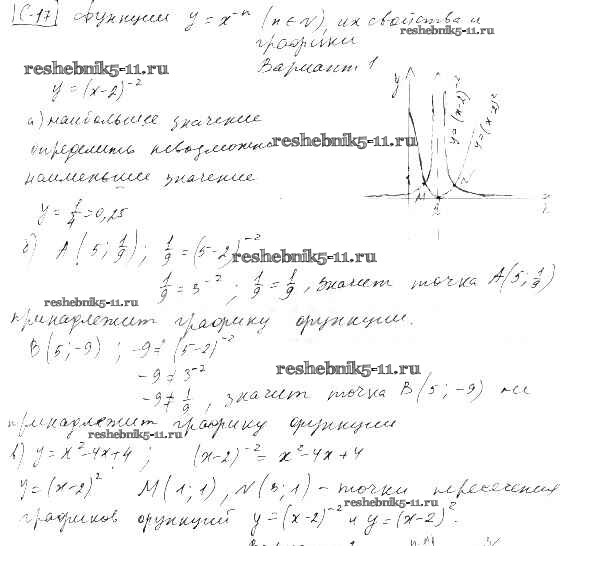 С-17 Функции y = x⁻ⁿ (n ∈ N), их свойства и
reshebnik5-11.ru
графики
reshebnik5-11.ru
Вариант 1
y = (x-2)⁻²
y
y = (x-2)⁻²
y = (x-2)²
а) наибольшее значение
определить невозможно
reshebnik5-11.ru
наименьшее значение
M
N
2
y = 1/4 = 0,25
б) A(5; 1/9); 1/9 = (5-2)⁻²
reshebnik5-11.ru
1/9 = 3⁻²; 1/9 = 1/9, значит точка A(5; 1/9)
reshebnik5-11.ru
принадлежит графику функции.
B(5; -9); -9 ≠ (5-2)⁻²
-9 ≠ 3⁻²
reshebnik5-11.ru
-9 ≠ 1/9, значит точка B(5; -9) не
принадлежит графику функции
reshebnik5-11.ru
в) y = x² - 4x + 4; (x-2)⁻² = x² - 4x + 4
y = (x-2)² M(1; 1), N(3; 1) - точки пересечения
reshebnik5-11.ru
графиков функций y = (x-2)⁻² и y = (x-2)².